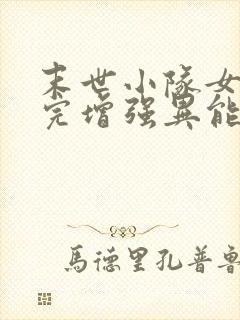 末世小隊女
完增强異能
馬德里孔普魯